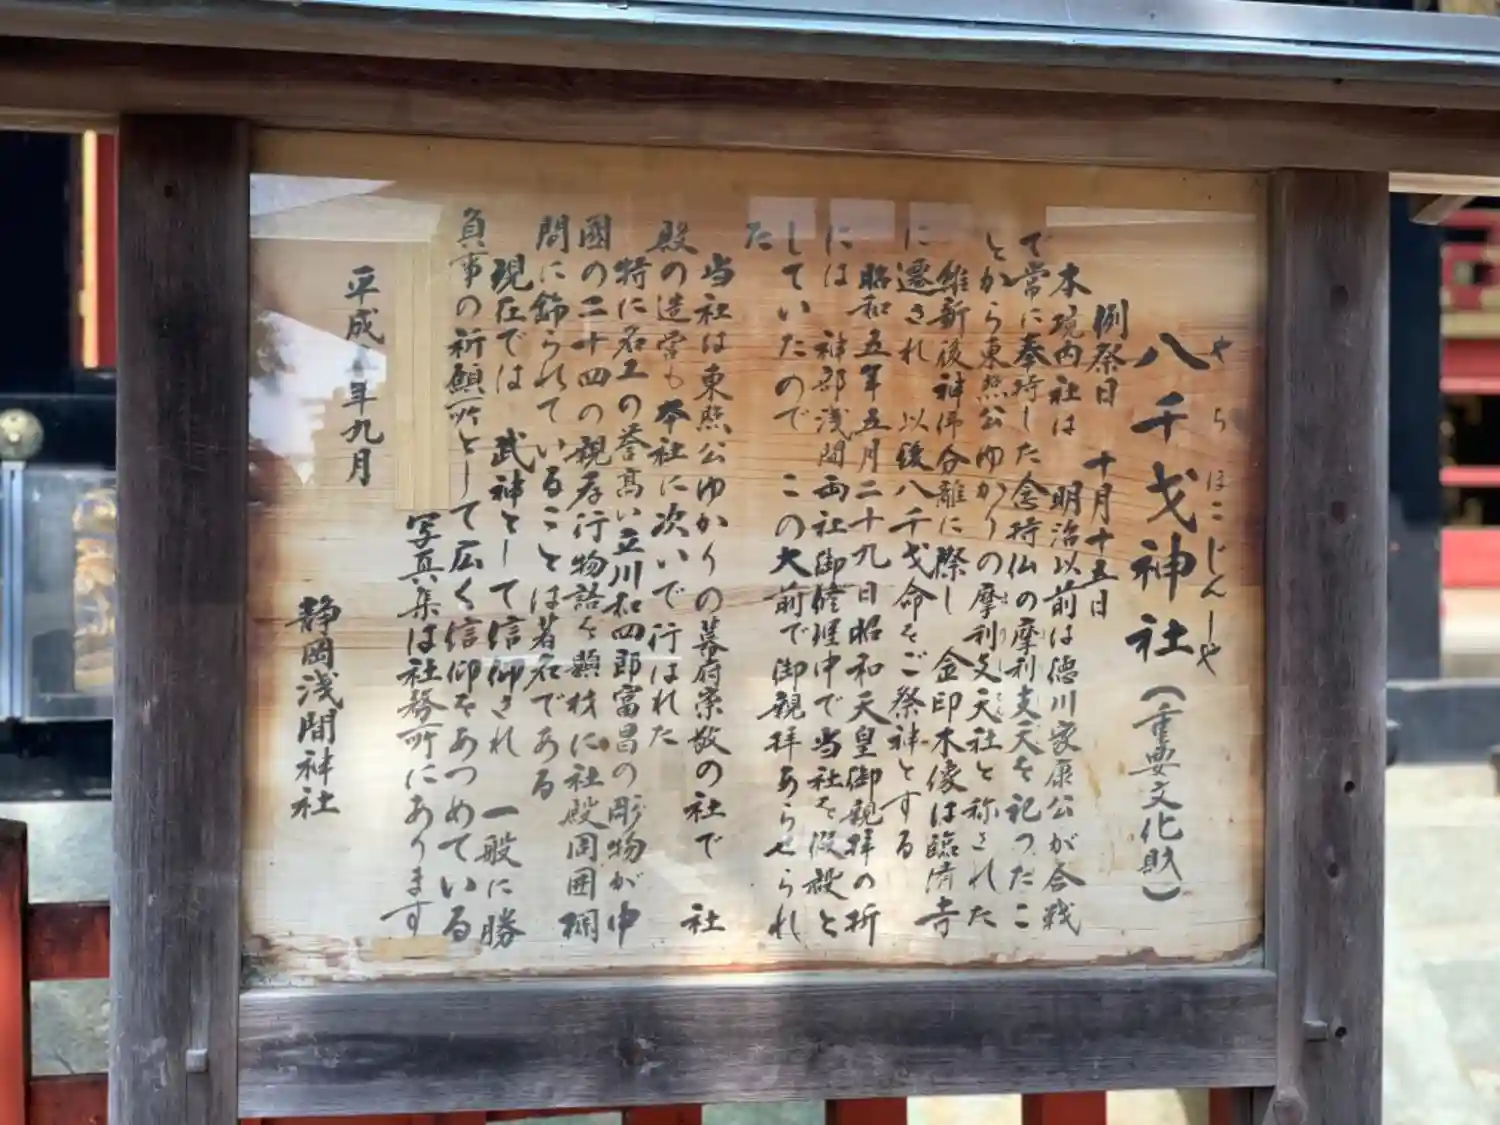 やちほこじんじゃ
八千戈神社（重要文化財）
例祭日　十月十五日
本境内社は　明治以前は徳川家康公が合戦
で常に奉持した念持仏の摩利支天を祀ったこ
とから東照公ゆかりの摩利支天社と称された
維新後神仏分離に際し　金印木像は臨済寺
に遷され　以後八千戈命をご祭神とする
昭和五年五月二十九日昭和天皇御親拝の折
には　神部浅間両社御修理中で当社を假殿と
していたので　この大前で御親拝あらせられ
た
当社は東照公ゆかりの幕府崇敬の社で　社
殿の造営も本社に次いで行はれた
特に名工の誉高い立川和四郎富昌の彫物が中
國の二十四の親孝行物語を題材に社殿周囲欄
間に飾られていることは著名である
現在では　武神として信仰され　一般に勝
負事の祈願所として広く信仰をあつめている
写真集は社務所にあります
平成 年九月
静岡浅間神社